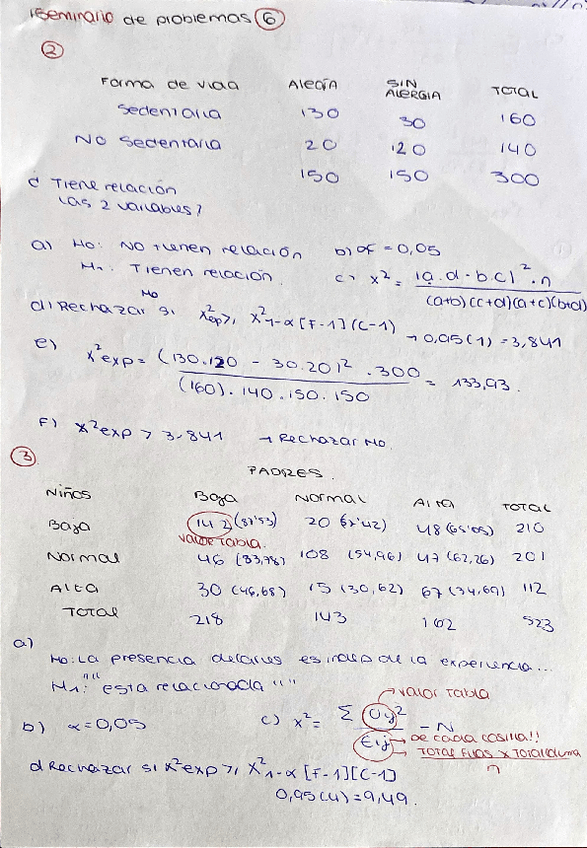 Seminario de problemas 6
2
Forma de vida ALEGÍA SIN ALERGIA TOTAL
Sedentaria 130 30 160
NO Sedentaria 20 120 140
150 150 300
¿ Tiene relación
las 2 variables?
a) Ho: NO tienen relación b) α = 0,05
H1: Tienen relación. c) x² = |a.d - b.c|² . n / (a+b)(c+d)(a+c)(b+d)
d) Rechazar Ho si x²exp ≥ x²1-α [F-1](C-1) → 0,95(1) = 3,841
e) x²exp = (130.120 - 30.20)² . 300 / (160). 140. 150. 150 = 133,93.
F) x²exp > 3.841 → Rechazar Ho.
3
PADRES.
Niños Baja NORMAL Alta TOTAL
Baja 142 (87'53) 20 (57'42) 48 (65'05) 210
valor tabla.
Normal 46 (83,78) 108 (54,96) 47 (62,26) 201
Alta 30 (46,68) 15 (30,62) 67 (34,69) 112
TOTAL 218 143 162 523
a)
Ho: La presencia de caries es indep de la experiencia...
H1: "" esta relacionada " "
b) α = 0,05 c) x² = Σ Oij² / Eij - N
→ valor tabla
→ De cada casilla!!
→ Total Filas x Total columa / n
d Rechazar si x²exp ≥ x²1-α [F-1][C-1]
0,95 (4) = 9,49.